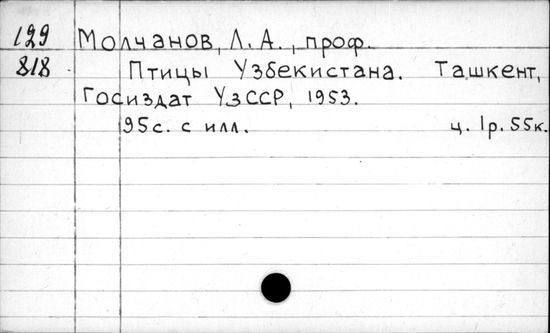 129 Молчанов, Л. А., проф.
818 Птицы Узбекистана. Ташкент,
Госиздат УзССР, 1953.
95с. с илл. ц. 1р. 55к.